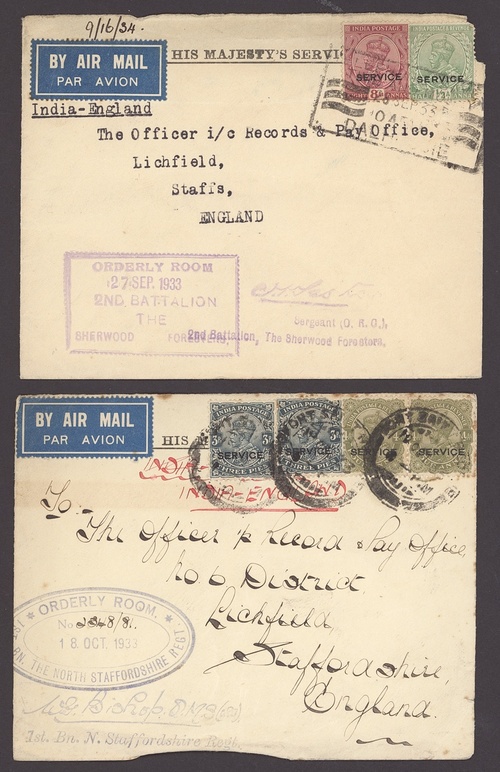 9/16/34.
BY AIR MAIL
PAR AVION
HIS MAJESTY'S SERVI
INDIA POSTAGE
SERVICE
8
ANNAS
INDIA POSTAGE & REVENUE
SERVICE
SEP 33
India-England
The Officer i/c Records & Pay Office,
Lichfield,
Staffs,
ENGLAND
ORDERLY ROOM
27 SEP. 1933
2ND BATTALION
THE
SHERWOOD FORESTERS,
Sergeant (O. R. O.),
2nd Battalion, The Sherwood Foresters,
BY AIR MAIL
PAR AVION
HIS M
INDIA POSTAGE
SERVICE
THREE PIES
INDIA POSTAGE
SERVICE
THREE PIES
SERVICE
SERVICE
INDIA-
INDIA-ENGLAND
To,
The Officer i/c Record & Pay Office,
No 6 District
Lichfield,
Staffordshire,
England.
ORDERLY ROOM.
No. 2348/8.
18 OCT. 1933
1ST BN. THE NORTH STAFFORDSHIRE REGT
1st. Bn. N. Staffordshire Regt.